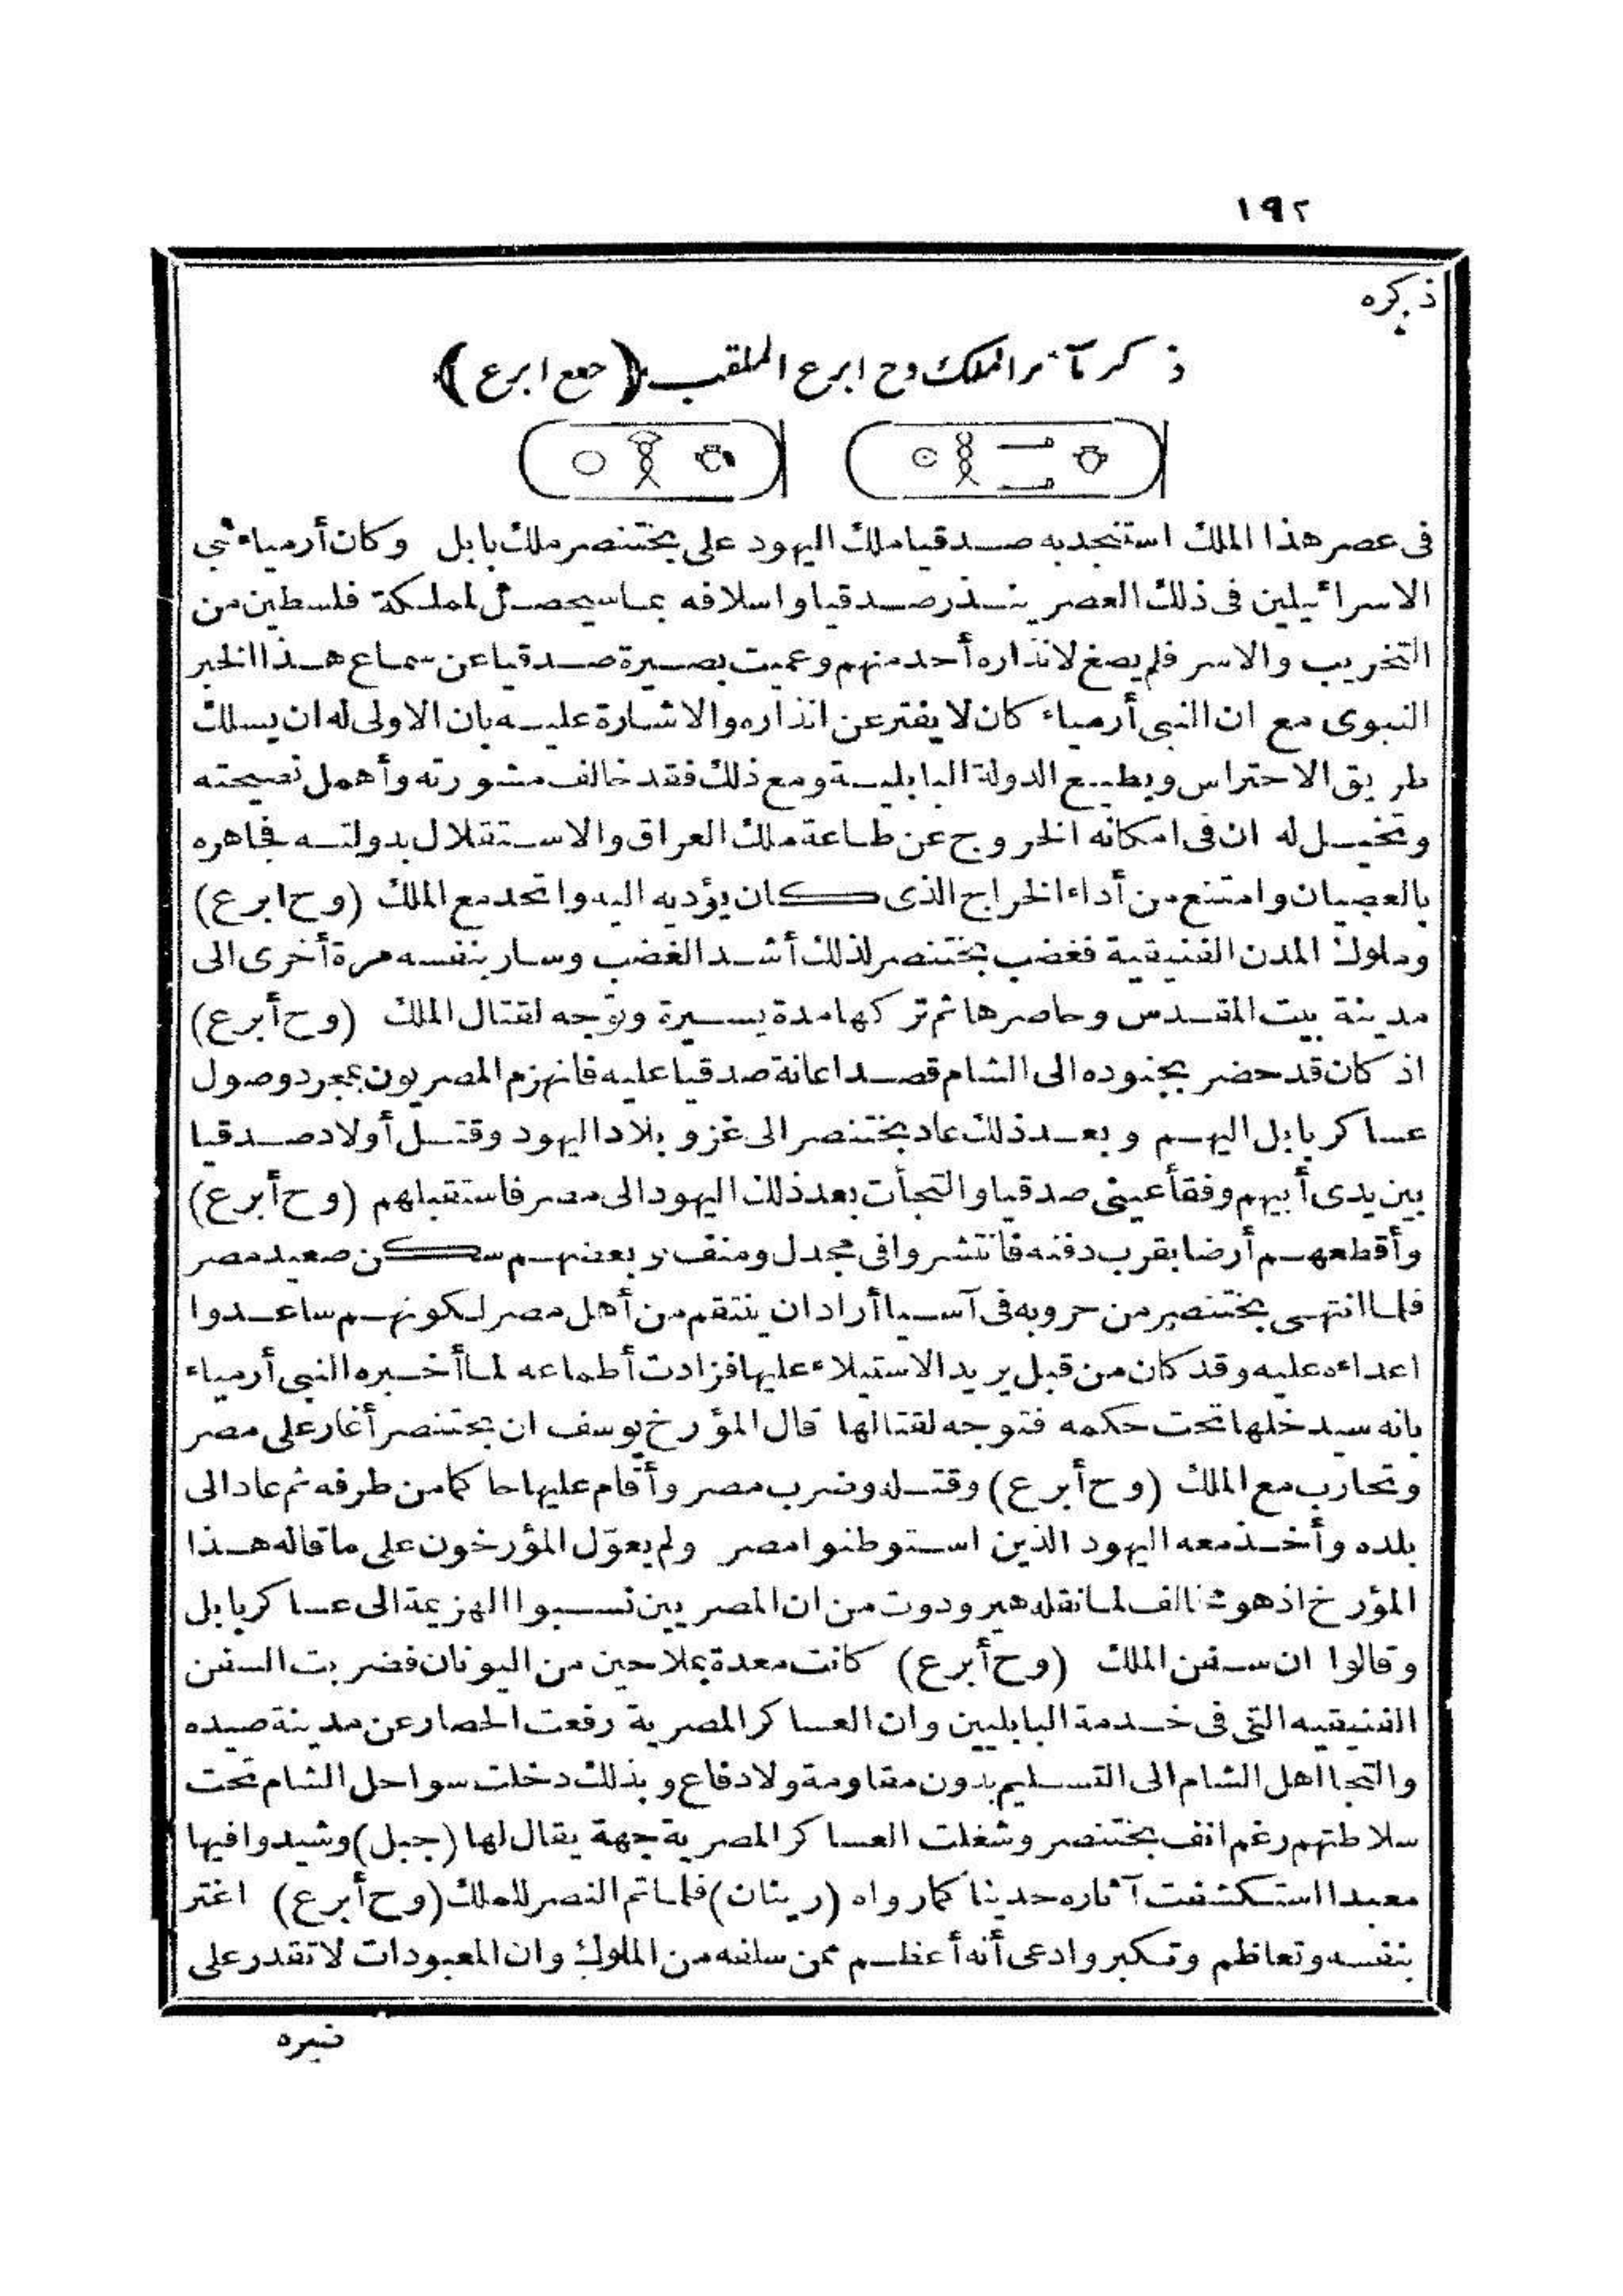 ١٩٢
ذكره
ذكر مآثر الملك وح ابرع الملقب (حعع ابرع)
فى عصر هذا الملك استنجد به صدقيا ملك اليهود على بختنصر ملك بابل وكان أرمياء نبي
الاسرائيلين فى ذلك العصر ينذر صدقيا واسلافه بما سيحصل لمملكة فلسطين من
التخريب والاسر فلم يصغ لانذاره أحد منهم وعميت بصيرة صدقيا عن سماع هذا الخبر
النبوى مع ان النبى أرمياء كان لا يفتر عن انذاره والاشارة عليه بان الاولى له ان يسلك
طريق الاحتراس ويطيع الدولة البابلية ومع ذلك فقد خالف مشورته وأهمل نصيحته
وتخيل له ان فى امكانه الخروج عن طاعة ملك العراق والاستقلال بدولته فجاهره
بالعصيان وامتنع من أداء الخراج الذى كان يؤديه اليه واتحد مع الملك (وح ابرع)
وملوك المدن الفنيقية فغضب بختنصر لذلك أشد الغضب وسار بنفسه مرة أخرى الى
مدينة بيت المقدس وحاصرها ثم تركها مدة يسيرة وتوجه لقتال الملك (وح أبرع)
اذ كان قد حضر بجنوده الى الشام قصد اعانة صدقيا عليه فانهزم المصريون بمجرد وصول
عساكر بابل اليهم وبعد ذلك عاد بختنصر الى غزو بلاد اليهود وقتل أولاد صدقيا
بين يدى أبيهم وفقأ عينى صدقيا والتجأت بعد ذلك اليهود الى مصر فاستقبلهم (وح أبرع)
وأقطعهم أرضا بقرب دفنه فانتشروا فى مجدل ومنف وبعضهم سكن صعيد مصر
فلما انتهى بختنصر من حروبه فى آسيا أراد ان ينتقم من أهل مصر لكونهم ساعدوا
اعداءه عليه وقد كان من قبل يريد الاستيلاء عليها فزادت أطماعه لما أخبره النبى أرمياء
بانه سيدخلها تحت حكمه فتوجه لقتالها قال المؤرخ يوسف ان بختنصر أغار على مصر
وتحارب مع الملك (وح أبرع) وقتله وضرب مصر وأقام عليها حاكما من طرفه ثم عاد الى
بلده وأخذ معه اليهود الذين استوطنوا مصر ولم يعوّل المؤرخون على ما قاله هذا
المؤرخ اذ هو مخالف لما نقله هيرودوت من ان المصريين نسبوا الهزيمة الى عساكر بابل
وقالوا ان سفن الملك (وح أبرع) كانت معدة بملاحين من اليونان فضربت السفن
الفنيقيه التى فى خدمة البابليين وان العساكر المصرية رفعت الحصار عن مدينة صيده
والتجا اهل الشام الى التسليم بدون مقاومة ولا دفاع وبذلك دخلت سواحل الشام تحت
سلاطتهم رغم انف بختنصر وشغلت العساكر المصرية جهة يقال لها (جبل) وشيدوا فيها
معبدا استكشفت آثاره حديثا كما رواه (رينان) فلما تم النصر للملك (وح أبرع) اغتر
بنفسه وتعاظم وتكبر وادعى أنه أعظم ممن سلفه من الملوك وان المعبودات لا تقدر على